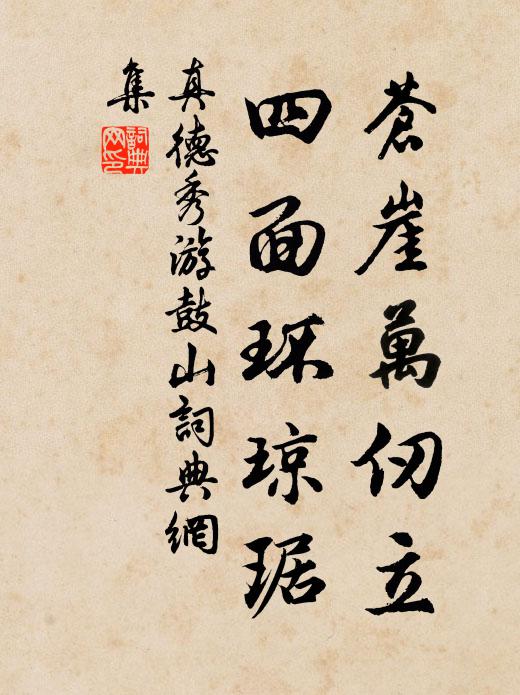 蒼崖萬仞立
四面环琼琚
真德秀游鼓山詞典網
集
詞典网印